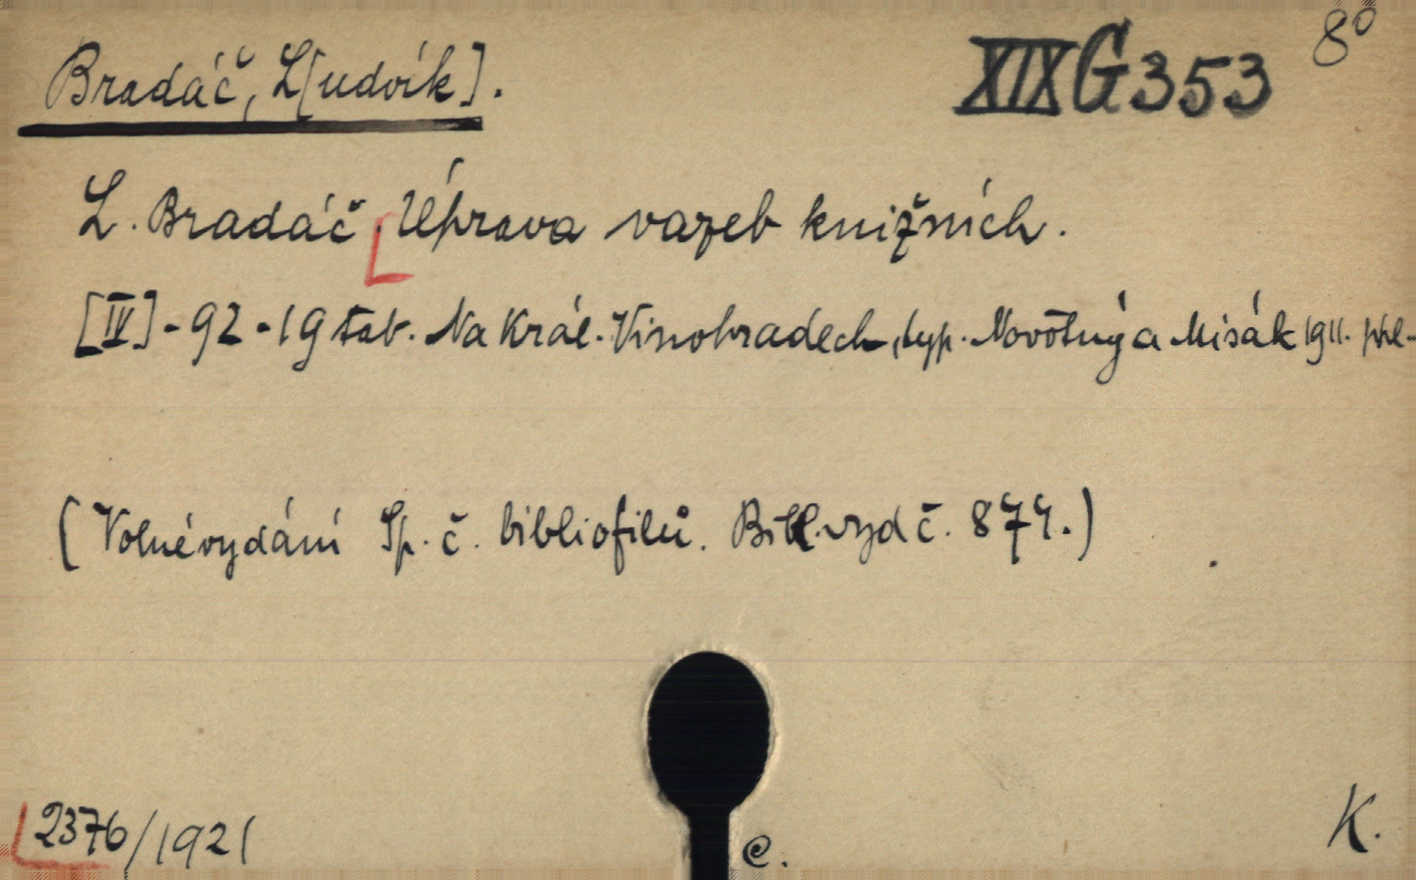 Bradáč, L[udvík].
XIX G 353
8°
L. Bradáč, Úprava vazeb knižních.
[IV] - 92 - 19 tab. Na Král. Vinohradech, typ. Novotný a Misák 1911. Pol-
(Volné vydání Sp. č. bibliofilů. Bibl. vyd č. 874.)
2376/1921
e.
K.